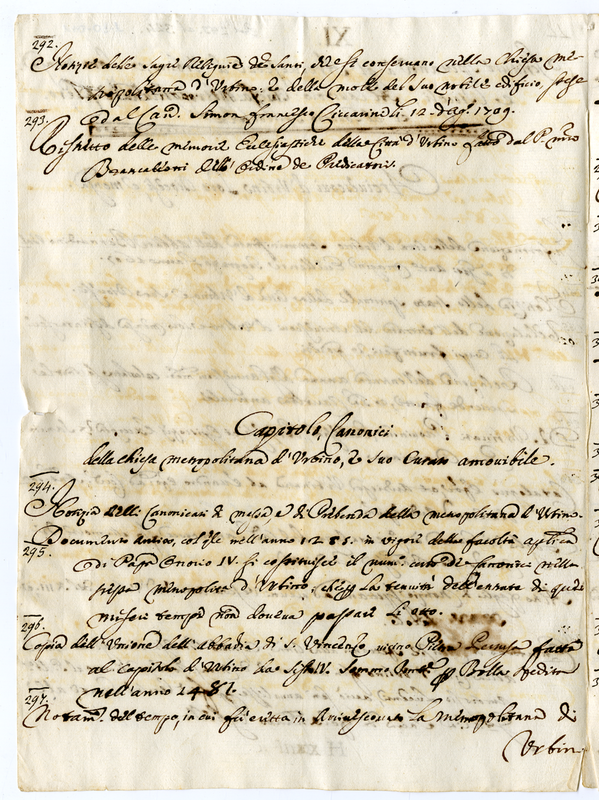 292.
Notizie delle Sagre Reliquie de Santi, che si conservano nella Chiesa me-
tropolitana d'Urbino, e della mole del suo nobile edificio, stese
dal Can. Simon Francesco Ciccarini li 12. d'Ag. 1709.
293.
Ristretto delle memorie Eclesiastiche della Città d'Urbino fatto dal P. mro
Brancaleoni dell' Ordine de Predicatori.
Capitolo, Canonici
della chiesa metropolitana d'Urbino, e suo Curato amovibile.
294.
Notizia delli Canonicati di Prebenda della metropolitana d'Urbino.
295.
Documento antico, col q.le nell'anno 1285. in vigore della facoltà aplica
di Papa Onorio IV. si costituisce il num. certo de Canonici nella
stessa metropolita d'Urbino, che p la tenuità dell'entrate di quei
miseri tempi non doveva passare li otto.
296.
Copia dell'Unione dell'abbadia di S. Vincenzo vicino Pietra Pertusa fatta
al Capitolo d'Urbino da Sisto IV. Sommo Bolla spedita
nell'anno 1481.
297.
Notam. del tempo, in cui fu eretta in Arcivescovato la Metropolitana di
Urbin